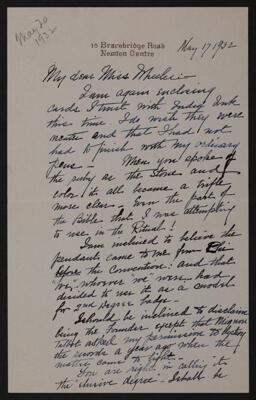 May 20
1932
15 Bracebridge Road
Newton Centre
May 17 1932
My dear Miss Wheeler:-
I am again enclosing
cards I trust with India Ink
this time I do wish they were
neater and that I had not
had to finish with my ordinary
pen - When you spoke of
the ruby as the Stone and
color it all became a trifle
more clear - Even the part of
the Bible that I was attempting
to use in the Ritual!
I am inclined to believe the
pendant came to me from
before the Convention: and that
"we" whoever we were had
decided to use it as a model
for 2nd Degree badge -
I should be inclined to disclaim
being the Founder except that Mignon
Talbot asked my permission to
the words a year ago when the
matter came to light -
You are right in calling it
the elusive degree - I shall be